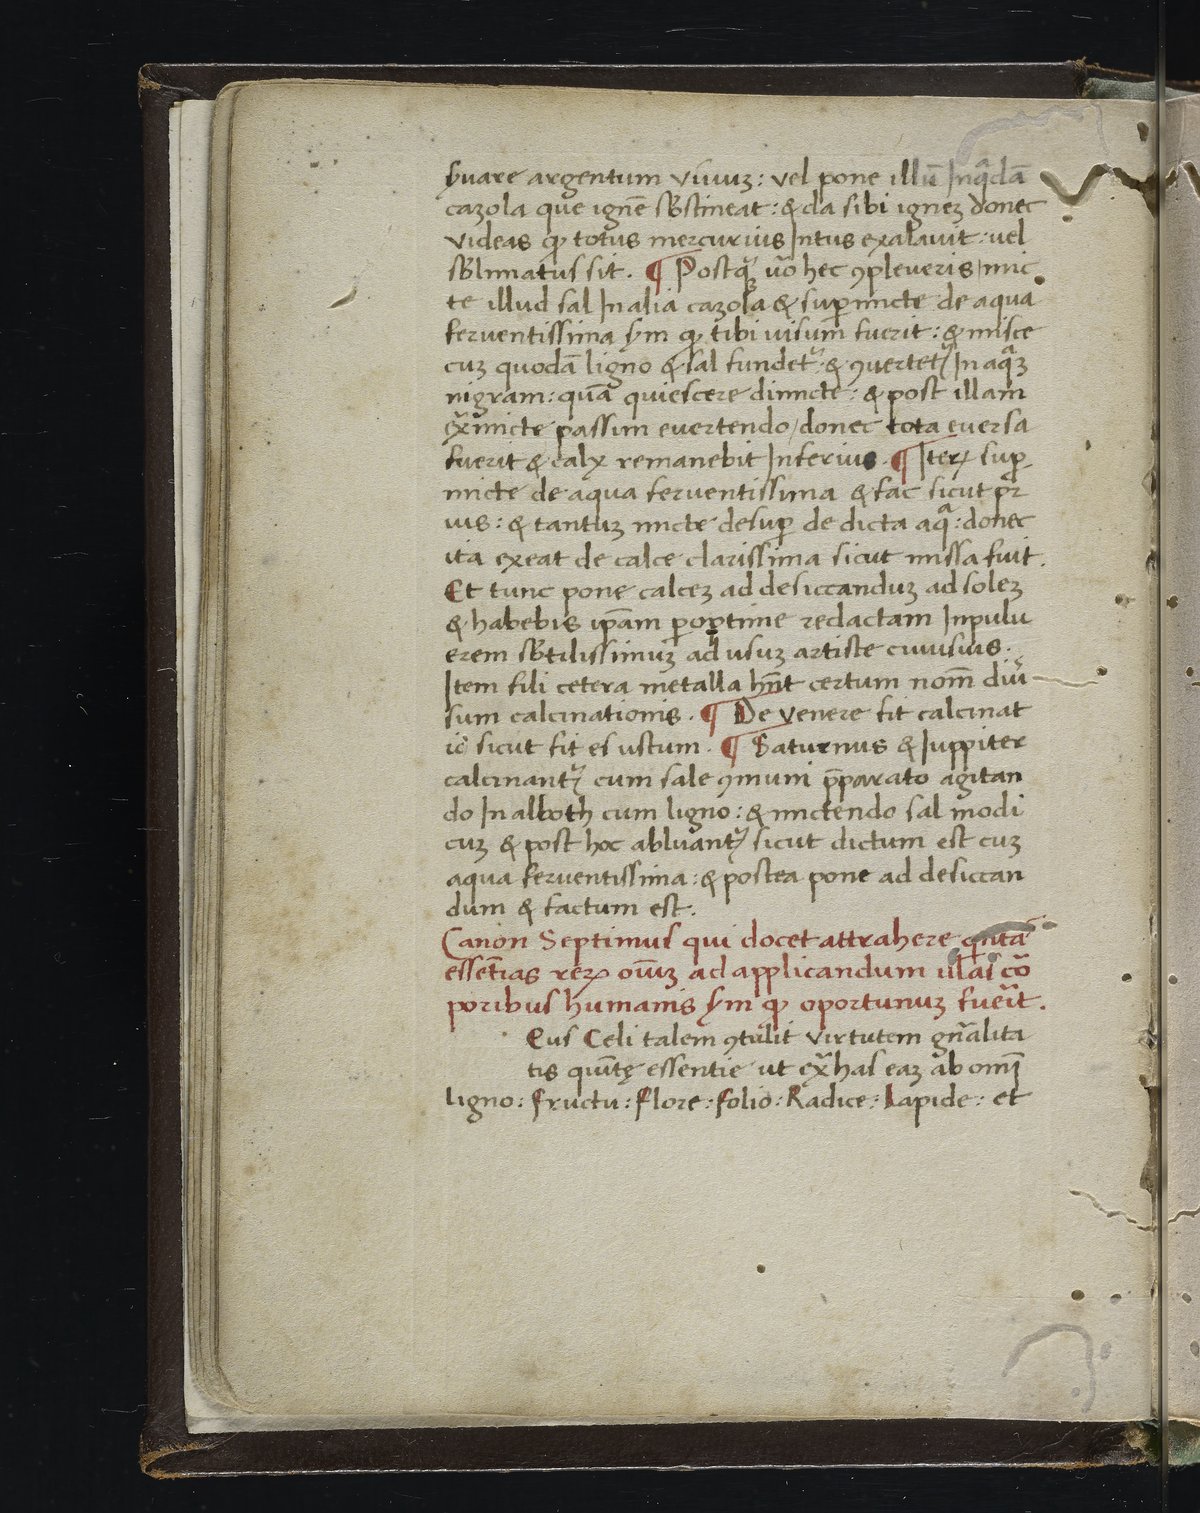 buare argentum viuuꝫ: vel pone illū Inq̄dā
cazola que ignē sb̄stineat: & da sibi igneꝫ donec
videas ꝙ totus mercurius Intus exalauit: uel
sb̄limatus sit. ¶ Postqꝫ u̅o hec ꝯpleueris mic
te illud sal In alia cazola & suꝑmicte de aqua
feruentissima s̄m ꝙ tibi uisum fuerit: & misce
cuꝫ quodā ligno & sal fundet᷑ & ꝯuertet᷑ In aq̄ꝫ
nigram: quā quiescere dimicte: & post illam
ex̄micte passim euertendo / donec tota euersa
fuerit & calx remanebit Inferius. ¶ Iteꝝ suꝑ
micte de aqua feruentissima & fac sicut pr̄
ius: & tantuꝫ micte desuꝑ de dicta aq̄: donec
ita exeat de calce clarissima sicut missa fuit.
Et tunc pone calceꝫ ad desiccanduꝫ ad soleꝫ
& habebis ip̄am ꝑoptime redactam Inpulu
erem sb̄tilissimuꝫ ad usuꝫ artiste cuiusuis.
Item fili cetera metalla hn̄t certum nom̄ diū
sum calcinationis. ¶ De Venere fit calcinat
io sicut fit es ustum. ¶ Saturnus & Iuppiter
calcinant᷑ cum sale ꝯmuni p̄parato agitan
do In alboth cum ligno: & mictendo sal modi
cuꝫ & post hoc abluant᷑ sicut dictum est cuꝫ
aqua feruentissima: & postea pone ad desiccan
dum & factum est.
Canon Septimus qui docet attrahere qn̄ta
essent̄ias reꝝ om̄iuꝫ ad applicandum illas cō
poribus humanis s̄m ꝙ oportunuꝫ fuerit.
Eus Celi talem ꝯtulit virtutem gn̄alita
tis quītę essentie ut ex̄has eaꝫ ab omī
ligno: fructu: flore: folio: Radice: Lapide: et